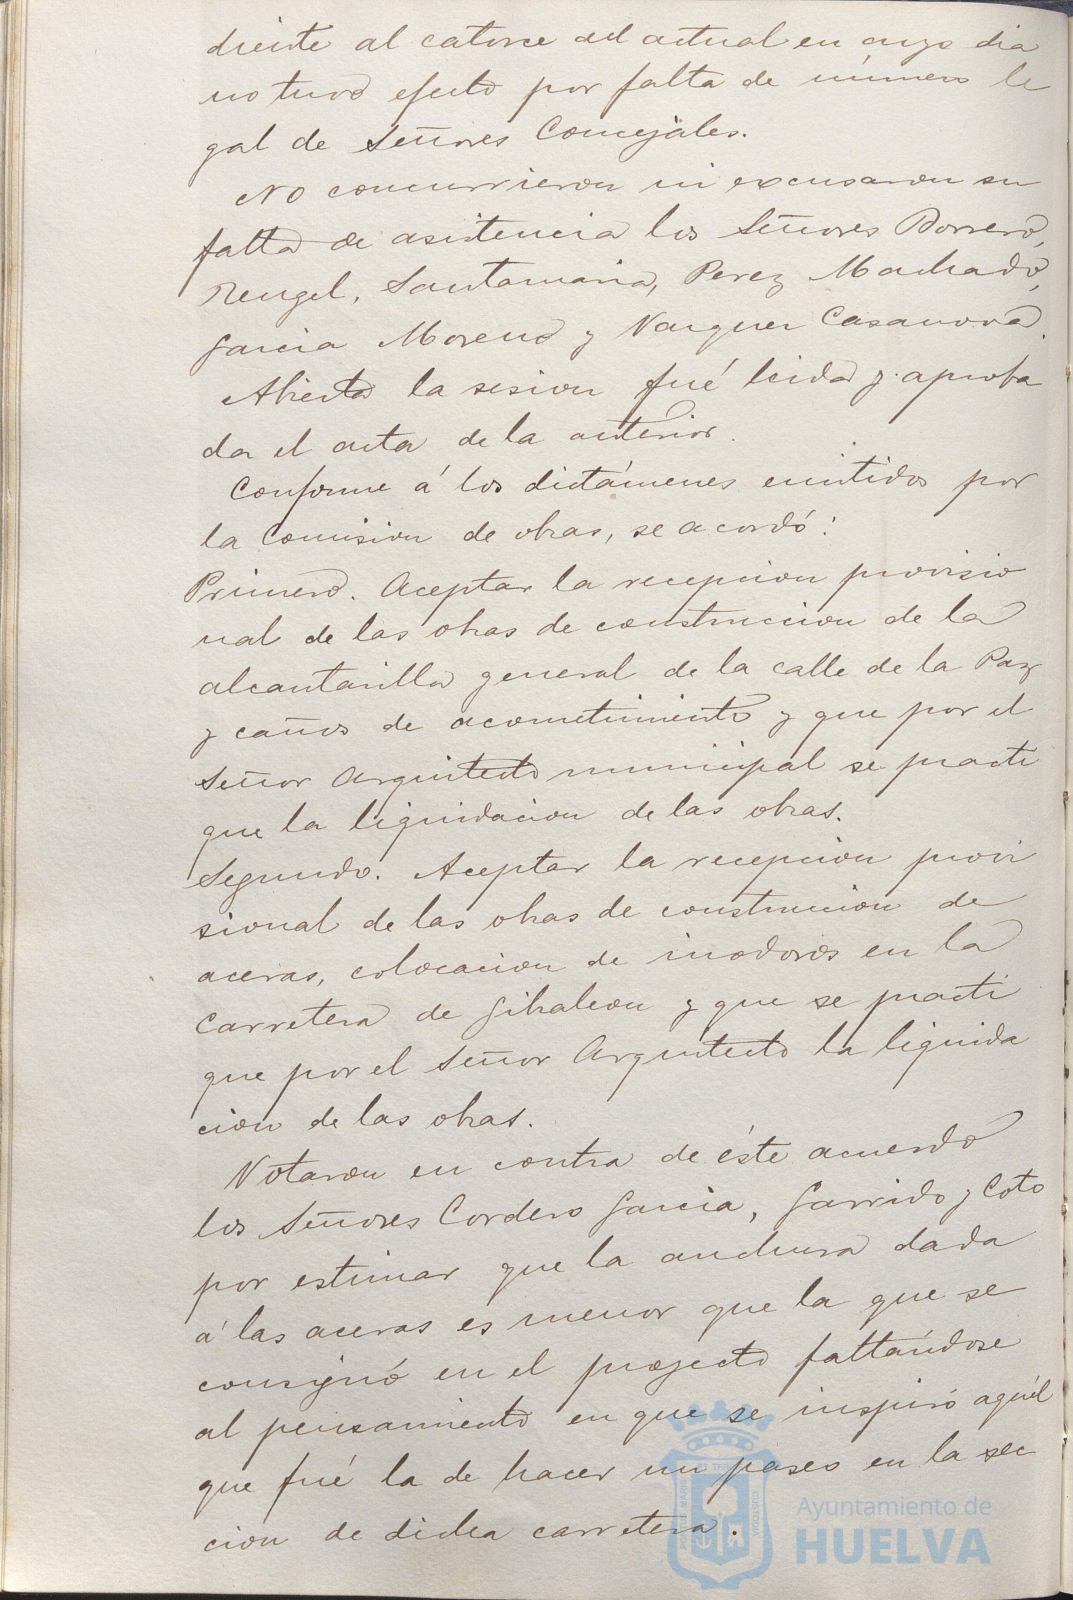 diente al catorce del actual en cuyo dia
no tuvo efecto por falta de número le
gal de Señores Concejales.
No concurrieron ni excusaron su
falta de asistencia los Señores Borrero,
Rengel, Santamaria, Perez Machado,
Garcia Moreno y Vazquez Casanova.
Abierta la sesion fué leida y aproba
da el acta de la anterior.
Conforme á los dictámenes emitidos por
la Comision de obras, se acordó:
Primero. Aceptar la recepcion provisio
nal de las obras de construccion de la
alcantarilla general de la calle de la Paz
y caños de acometimiento y que por el
Señor Arquitecto municipal se practi
que la liquidacion de las obras.
Segundo. Aceptar la recepcion provi
sional de las obras de construccion de
aceras, colocacion de inodoros en la
Carretera de Gibraleon y que se practi
que por el Señor Arquitecto la liquida
cion de las obras.
Votaron en contra de éste acuerdo
los Señores Cordero Garcia, Garrido y Coto
por estimar que la anchura dada
á las aceras es menor que la que se
consignó en el proyecto faltándose
al pensamiento en que se inspiró aquél
que fué la de hacer un paseo en la sec
cion de dicha carretera.
Ayuntamiento de
HUELVA